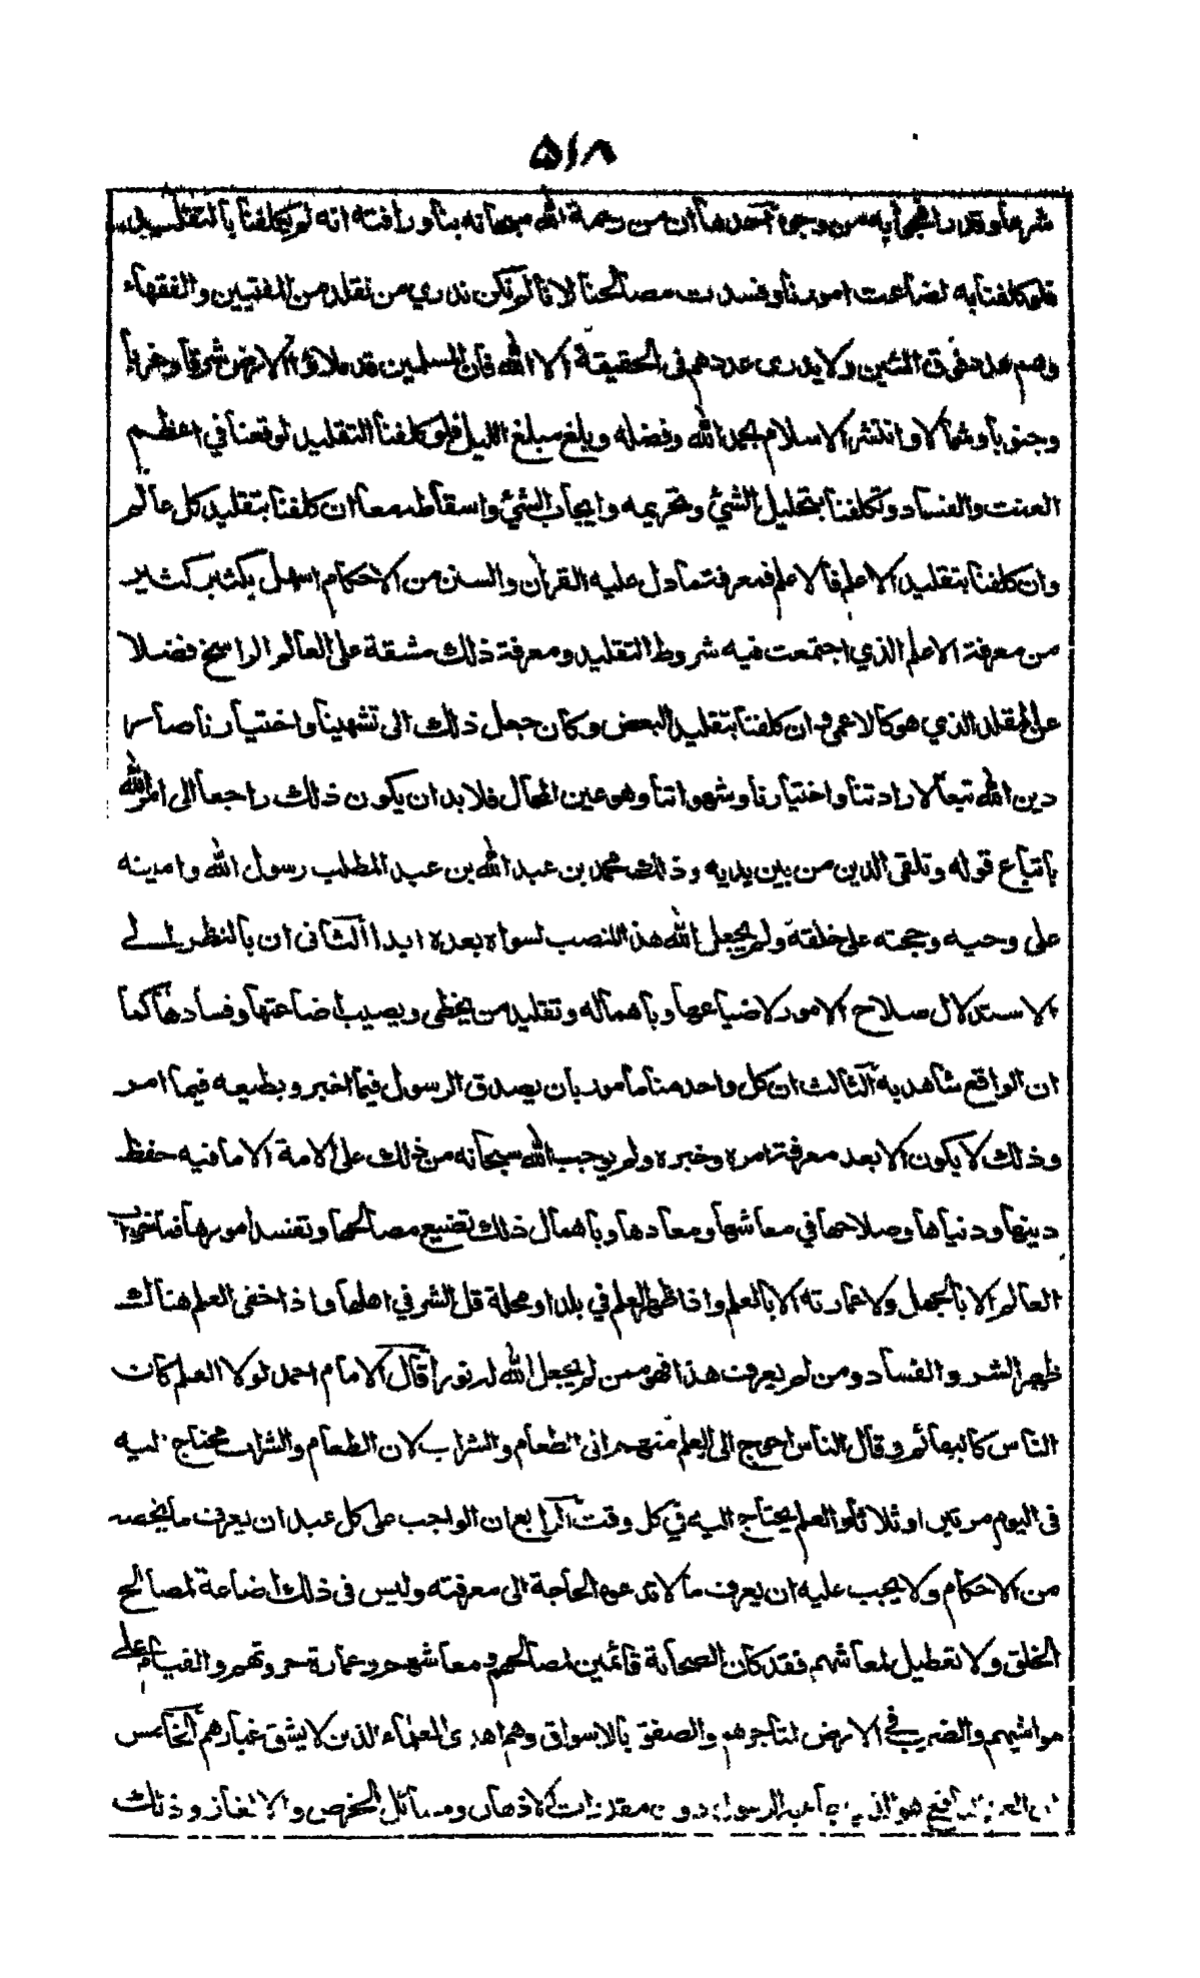 ٥١٨
شرعا وقدرا فنجيابه من وجوه أحدها أن من رحمة الله سبحانه بنا ورافته انه لم يكلفنا بالتقليد
فلو كلفنا به لضاعت امورنا وفسدت مصالحنا لانا لم نكن ندري من نقلد من المفتيين والفقهاء
وهم عدد فوق المئين ولا يدرى عددهم فى الحقيقة الا الله فان المسلمين قد ملاؤا الارض شرقا وغربا
وجنوبا وشمالا وانتشر الاسلام بحمد الله وفضله وبلغ مبلغ الليل فلو كلفنا التقليد لوقعنا في اعظم
العنت والفساد ولكلفنا بتحليل الشيئ وتحريمه وايجاب الشيئ واسقاطه معا ان كلفنا بتقليد كل عالم
وان كلفنا بتقليد الاعلم فالاعلم فمعرفة ما دل عليه القران والسنن من الاحكام اسهل بكثير كثير
من معرفة الاعلم الذي اجتمعت فيه شروط التقليد ومعرفة ذلك مشقة على العالم الراسخ فضلا
عن المقلد الذي هو كالاعمى وان كلفنا بتقليد البعض وكان جعل ذلك الى تشهينا واختيارنا صار
دين الله تبعا لارادتنا واختيارنا وشهواتنا وهو عين المحال فلا بد ان يكون ذلك راجعا الى امر الله
باتباع قوله وتلقى الدين من بين يديه وذلك محمد بن عبد الله بن عبد المطلب رسول الله وامينه
على وحيه وحجته على خلقه ولم يجعل الله هذا المنصب لسواه بعده ابدا الثانى ان بالنظر
الاستدلال صلاح الامور لا ضياعها وباهماله وتقليد من يخطى ويصيب اضاعتها وفسادها كما
ان الواقع شاهد به الثالث ان كل واحد منا مامور بان يصدق الرسول فيما اخبر ويطيعه فيما امر
وذلك لا يكون الا بعد معرفة امره وخبره ولم يوجب الله سبحانه من ذلك على الامة الا ما فيه حفظ
دينها ودنياها وصلاحها في معاشها ومعادها وباهمال ذلك تضيع مصالحها وتفسد امورها فما خراب
العالم الا بالجهل ولا عمارته الا بالعلم واذا ظهر العلم في بلد او محلة قل الشر في اهلها واذا خفى العلم هنالك
ظهر الشر والفساد ومن لم يعرف هذا فهو ممن لم يجعل الله له نورا قال الامام احمد لولا العلم كان
الناس كالبهائم وقال الناس احوج الى العلم منهم الى الطعام والشراب لان الطعام والشراب يحتاج اليه
فى اليوم مرتين او ثلاثا والعلم يحتاج اليه في كل وقت الرابع ان الواجب على كل عبد ان يعرف ما يخصه
من الاحكام ولا يجب عليه ان يعرف ما لا تدعوه الحاجة الى معرفته وليس فى ذلك اضاعة لمصالح
الخلق ولا تعطيل لمعاشهم فقد كان الصحابة قائمين لمصالحهم ومعاشهم وعمارة حروثهم والقيام على
مواشيهم والضرب في الارض لمتاجرهم والصفق بالاسواق وهم اهدى العلماء الذين لا يشق غبارهم الخامس
ان العلم النافع هو الذي جاء به الرسول دون مقدرات الاذهان ومسائل الخرص والالغاز وذلك